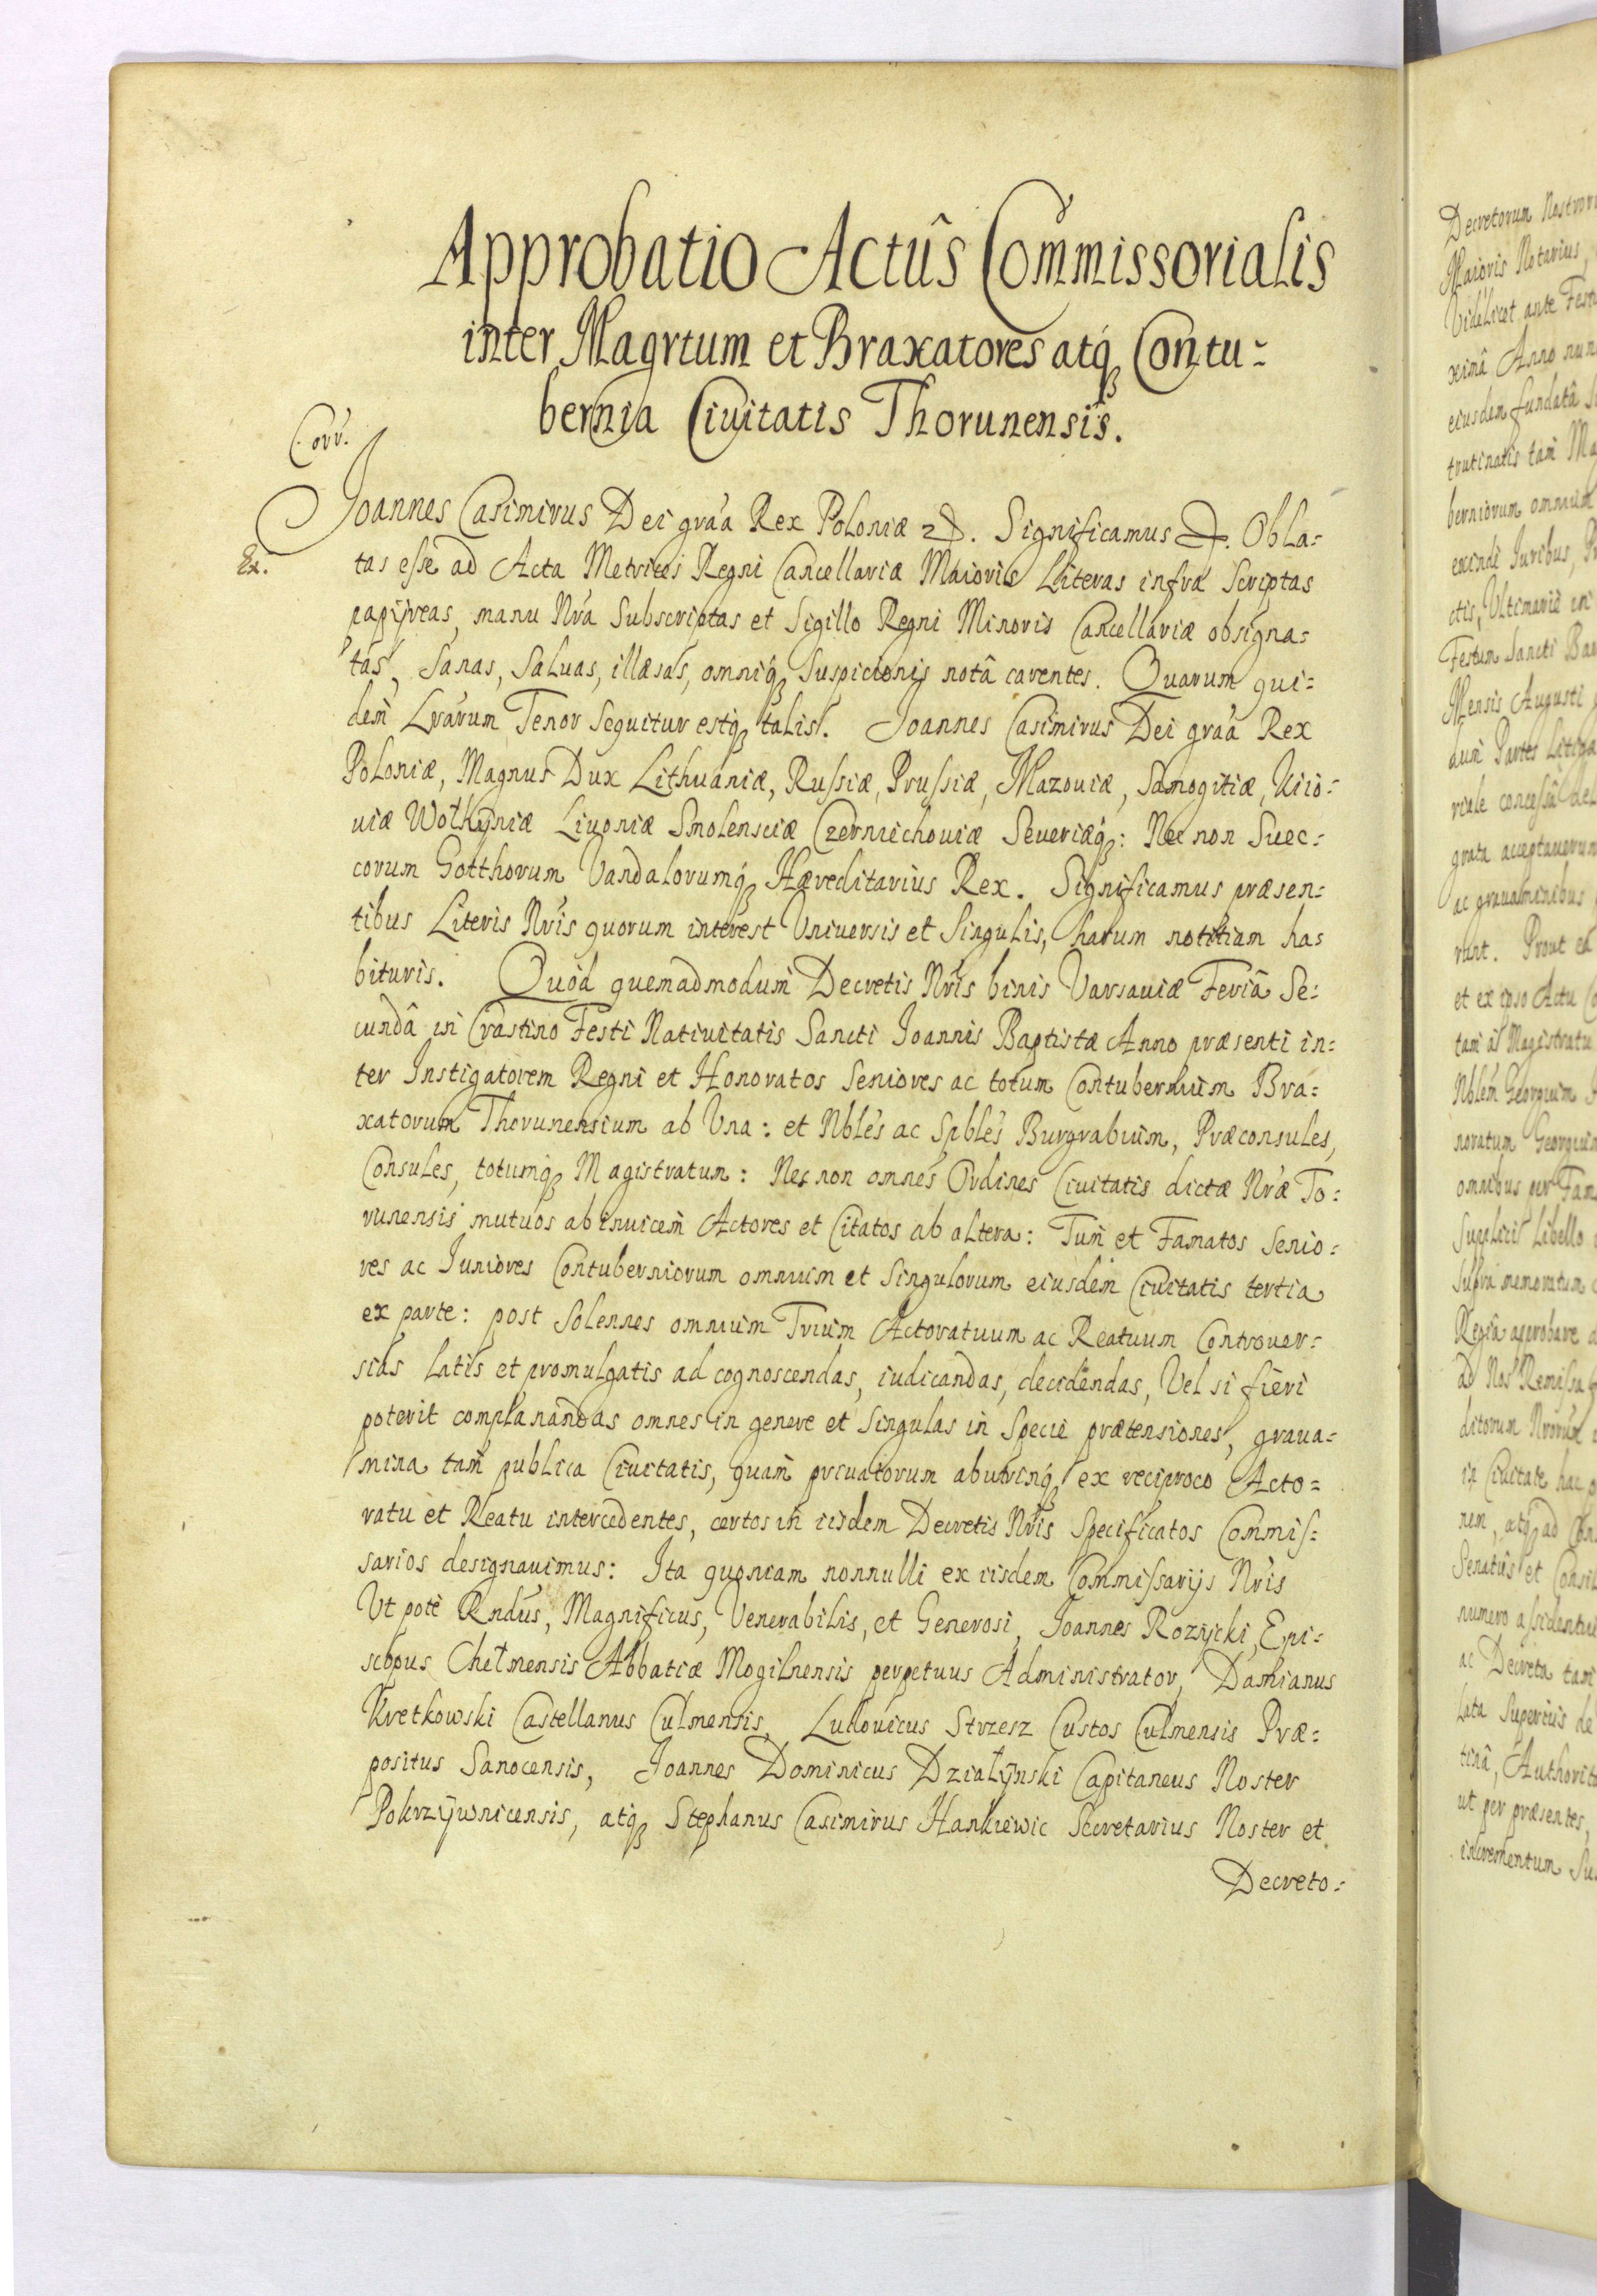 Approbatio Actûs Commissorialis
inter Magrtum et Braxatores atq₃ Contu=
bernia Ciuitatis Thorunensis.
Corr.
Joannes Casimirus Dei grãa Rex Poloniæ . Significamus . Obla=
Ex.
tas esse ad Acta Metrices Regni Cancellariæ Maioris Literas infra Scriptas
papijreas, manu Nra Subscriptas et Sigillo Regni Minoris Cancellariæ obsigna=
tas, Sanas, Saluas, illæsas, omniq₃ Suspicionis notâ carentes. Quarum qui=
dem Lrarum Tenor Sequitur estq₃ talis. Joannes Casimirus Dei grãa Rex
Poloniæ, Magnus Dux Lithuaniæ, Russiæ, Prussiæ, Mazouiæ, Samogitiæ, Kiio=
uiæ Wolhÿniæ Liuoniæ Smolensciæ Czerniechouiæ Seueriæq₃: Nec non Suec=
corum Gotthorum Vandalorumq₃ Hæreditarius Rex. Significamus præsen=
tibus Literis Nris quorum interest Vniuersis et Singulis, harum notitiam ha=
bituris. Quòd quemadmodum Decretis Nris binis Varsauiæ Feriâ Se=
cundâ in Crastino Festi Natiuitatis Sancti Joannis Baptistæ Anno præsenti in=
ter Instigatorem Regni et Honoratos Seniores ac totum Contubernium Bra=
xatorum Thorunensium ab Vna: et Nbles ac Spbles Burgrabium, Præconsules,
Consules, totumq₃ Magistratum: Nec non omnes Ordines Ciuitatis dictæ Nræ To=
runensis mutuos abinuicem Actores et Citatos ab altera: Tum et Famatos Senio=
res ac Juniores Contuberniorum omnium et Singulorum eiusdem Ciuitatis tertia
ex parte: post Solennes omnium Trium Actoratuum ac Reatuum Controuer=
sias latis et promulgatis ad cognoscendas, iudicandas, decidendas, Vel si fieri
poterit complanandas omnes in genere et Singulas in Specie prætensiones, graua=
mina tam publica Ciuitatis, quam priuatorum abutrinq₃ ex reciproco Acto=
ratu et Reatu intercedentes, certos in iisdem Decretis Nris Specificatos Commis=
sarios designauimus: Ita quoniam nonnulli ex iisdem Commissarijs Nris
Vt pote Rndus, Magnificus, Venerabilis, et Generosi, Joannes Rozÿcki, Epi=
scopus Chełmensis Abbatiæ Mogilnensis perpetuus Administrator, Damianus
Kretkowski Castellanus Culmensis, Ludouicus Strzesz Custos Culmensis Præ=
positus Sanocensis, Joannes Dominicus Działÿnski Capitaneus Noster
Pokrzÿwnicensis, atq₃ Stephanus Casimirus Hankiewic Secretarius Noster et
Decreto=
Decretorum Nostror
Maioris Notarius,
Videlicet ante Fest
ximâ Anno nun
eiusdem fundatâ
trutinatis tam Ma
berniorum omnium
exinde Juribus, Pr
ctis, Vltimariè in
Festum Sancti Bar
Mensis Augusti
dum Partes Litiga
riale concessû de
grata acceptauerun
ac grauaminibus
runt. Prout ea
et ex ipso Actu Co
tam à Magistratu
Nblem Georgium
noratum Georgium
omnibus per Fam
Supplici Libello
Supra memoratum
Regiâ approbare
ad Nos Remissa
ditorum Nrorum
in Ciuitate hac
nem, atq₃ ad Con
Senatus et Consil
numero assidentiu
ac Decreta tam
lata Superius de
tinâ, Authorita
ut per præsentes,
incrementum Su